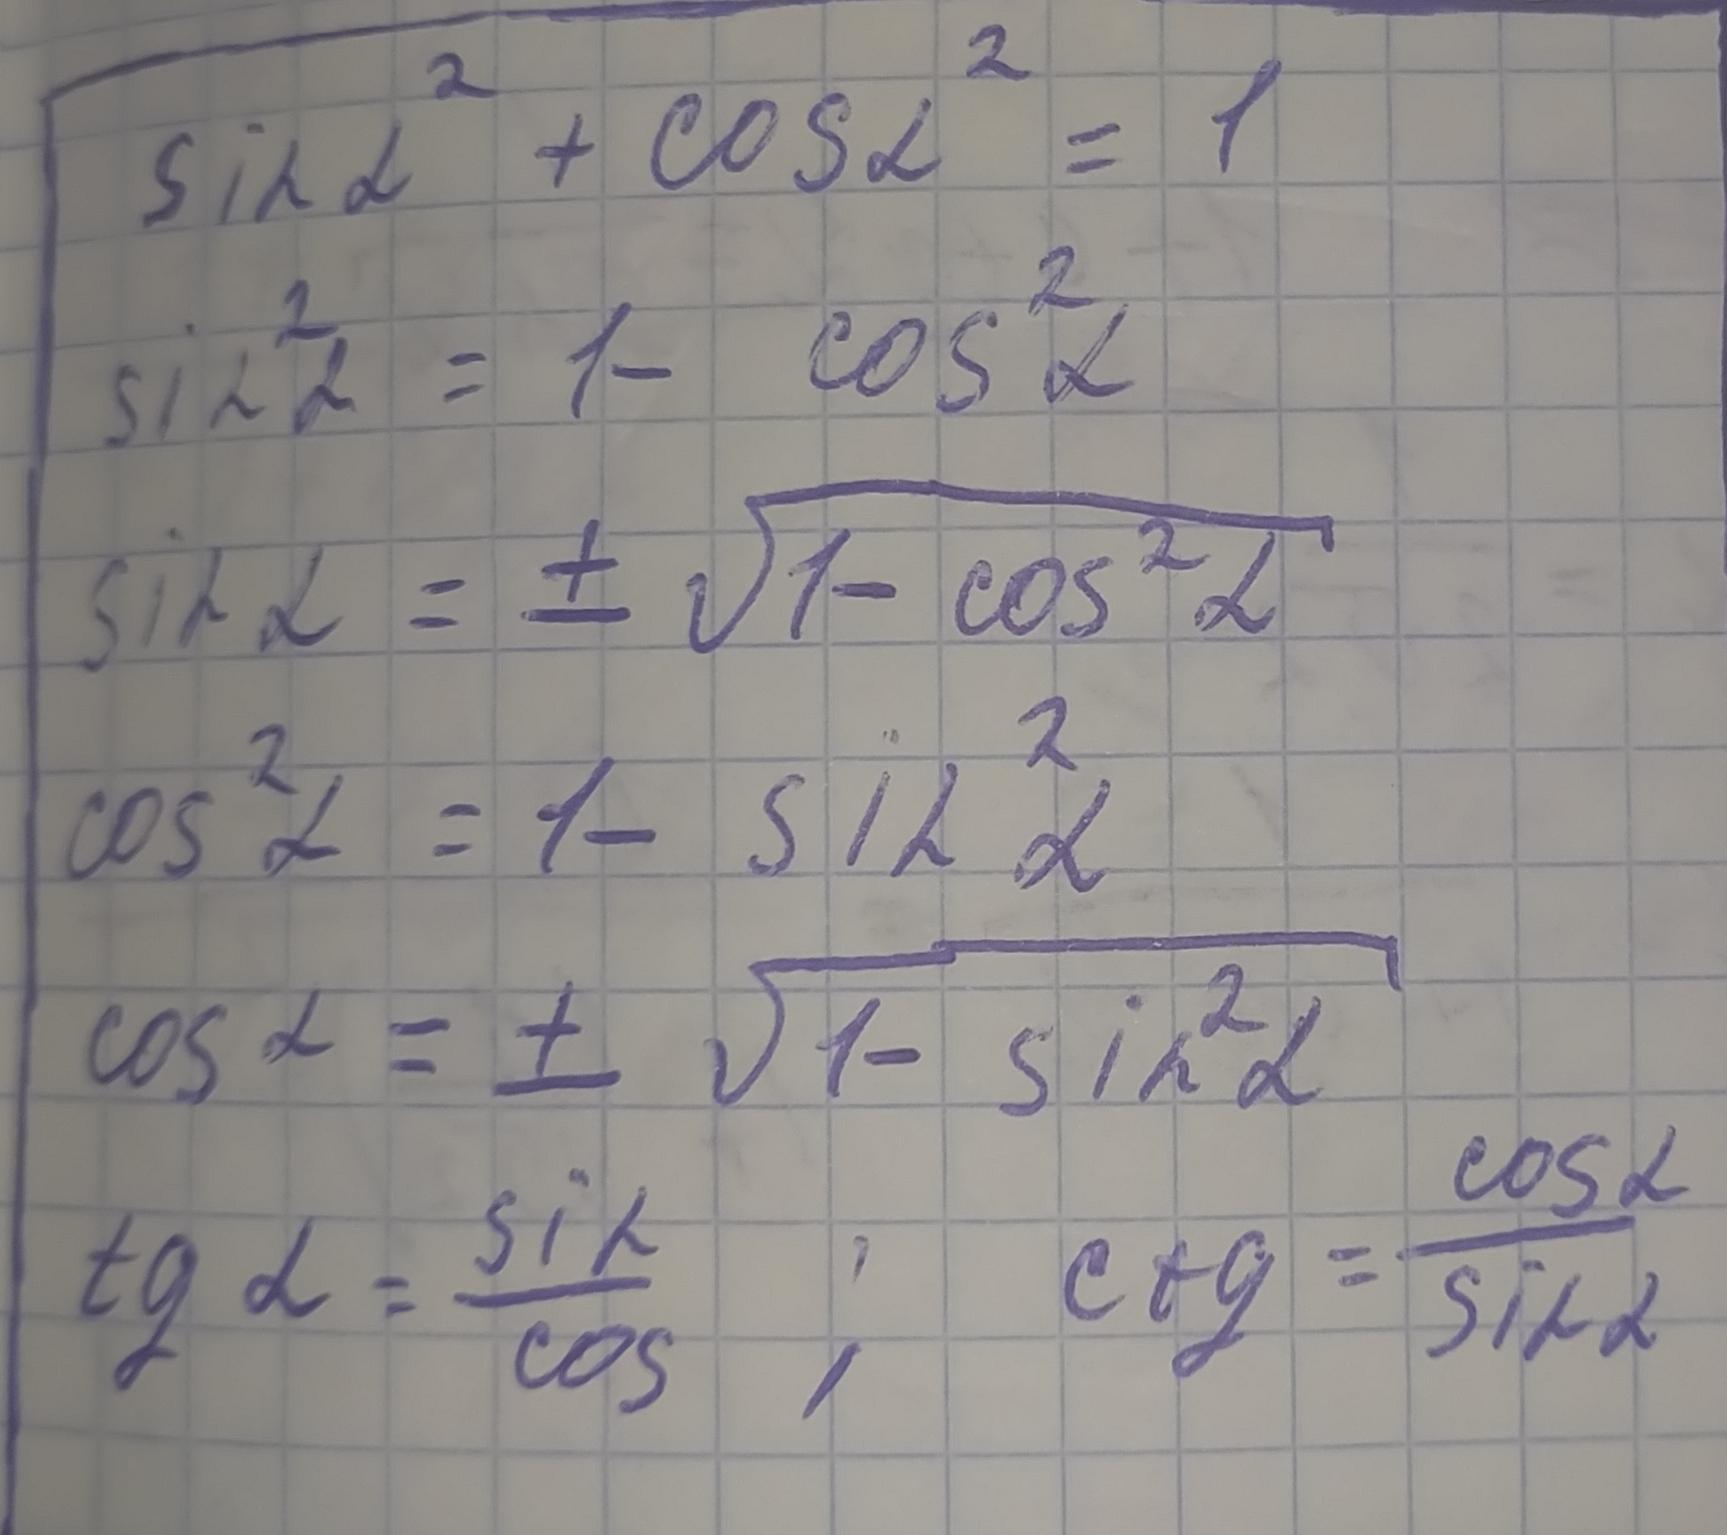 sin α² + cos α² = 1
sin²α = 1 - cos²α
sin α = ± √(1 - cos²α)
cos²α = 1 - sin²α
cos α = ± √(1 - sin²α)
tg α = sin/cos ; ctg = cosα/sinα